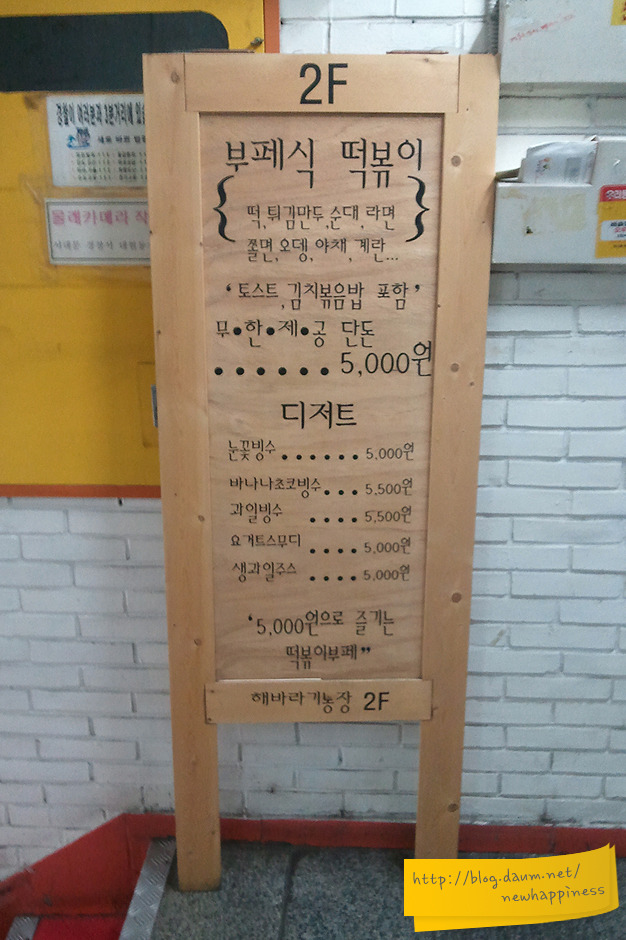 2F
부페식 떡볶이
{떡,튀김만두,순대,라면
쫄면,오뎅,야채,계란...}
‘토스트,김치볶음밥 포함’
무•한•제•공 단돈
...... 5,000원
디저트
눈꽃빙수 ...... 5,000원
바나나초코빙수 ... 5,500원
과일빙수 .... 5,500원
요거트스무디 .... 5,000원
생과일주스 .... 5,000원
‘5,000원으로 즐기는
떡볶이부페”
해바라기농장 2F
경찰이 여러분과 1분거리에
몰래카메라
서대문 경찰서
http://blog.daum.net/
newhappiness